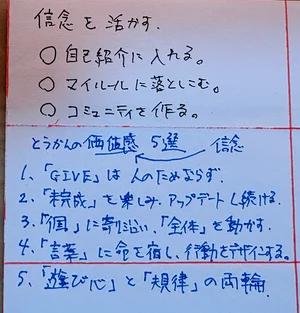 信念を活かす.
○ 自己紹介に入れる。
○ マイルールに落としこむ。
○ コミュニティを作る。
とうかんの価値感 5選 信念
1、「GIVE」は人のためならず.
2、「未完成」を楽しみ、アップデートし続ける.
3、「個」に寄り沿い、「全体」を動かす.
4、「言葉」に命を宿し、行動をデザインする。
5、「遊び心」と「規律」の両輪.